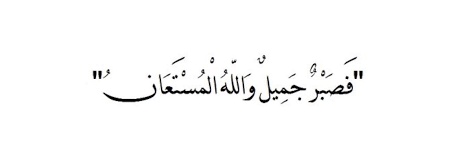 "فَصَبْرٌ جَمِيلٌ وَاللّهُ الْمُسْتَعَانُ"